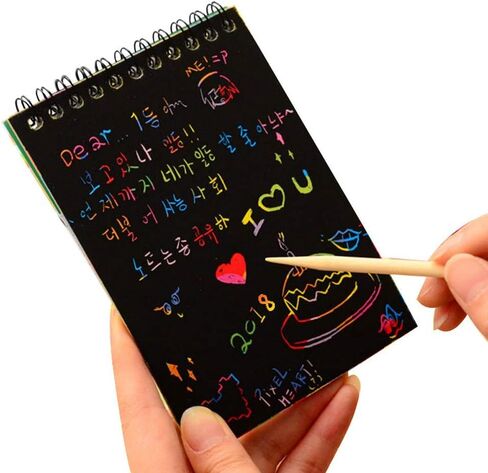 ME! =P
Dear... 1등아
보고있나 일등!!
언제까지 네가 일등 할 줄 아냐~
더불어 사는 사회
노트는좀 공유하
I ♡ U
2018
PIXEL
HEART!